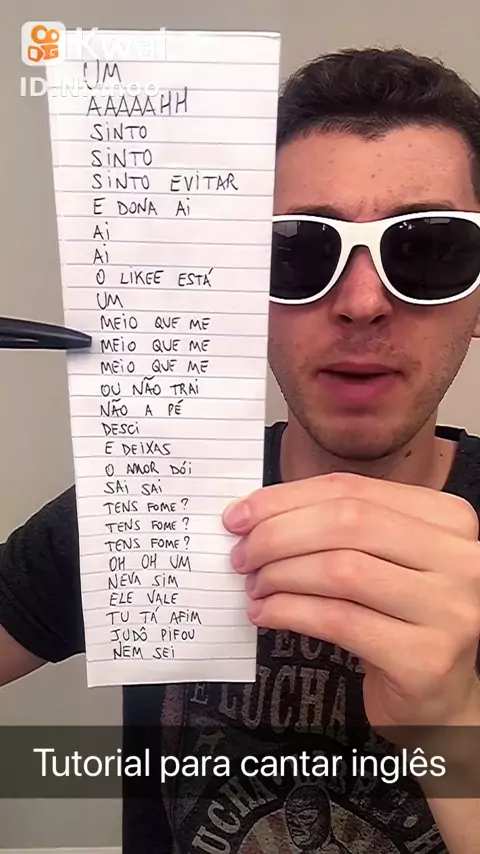 Kwai
UM
AAAAAHH
SINTO
SINTO
SINTO EVITAR
E DONA Ai
Ai
Ai
O LIKEE ESTÁ
UM
MEIO QUE ME
MEIO QUE ME
MEIO QUE ME
OU NÃO TRAI
NÃO A PÉ
DESCI
E DEIXAS
O AMOR DÓI
SAI SAI
TENS FOME?
TENS FOME?
TENS FOME?
OH OH UM
NEVA SIM
ELE VALE
TU TÁ AFIM
JUDÔ PIFOU
NEM SEI
LUCHA
Tutorial para cantar inglês
LUCHA